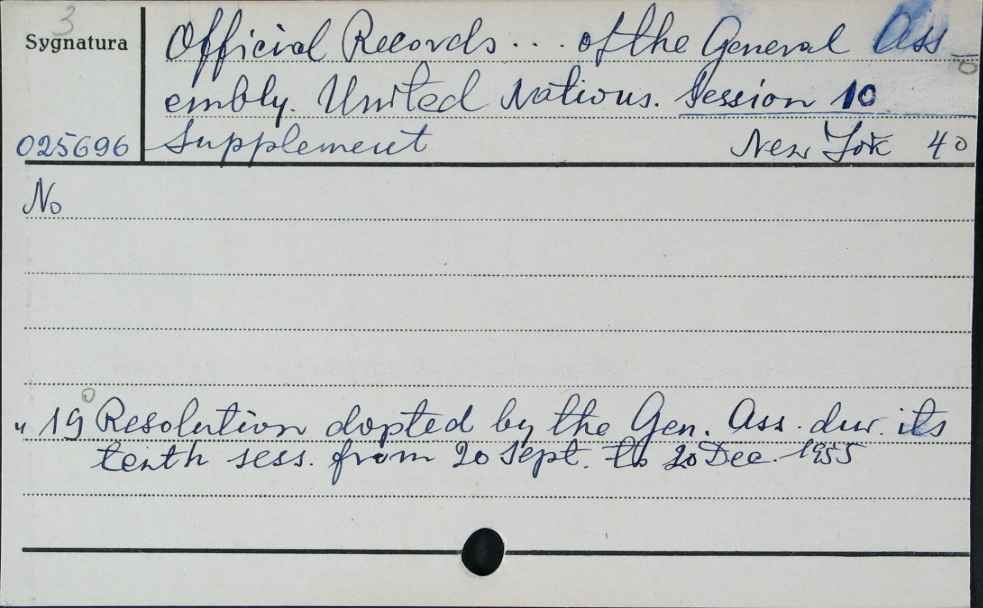 3
Sygnatura
Official Records ... of the General Ass
embly. United Nations. Session 10
025696 Supplement New Yok 40
No
„ 19 Resolution dopted by the Gen. Ass. dur. its
tenth sess. from 20 Sept. to 20 Dec. 1955